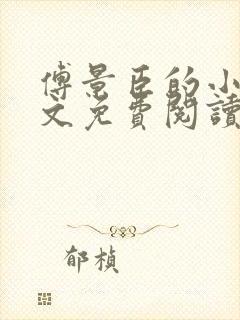 傅景臣的小
文免費閱讀
郁楨